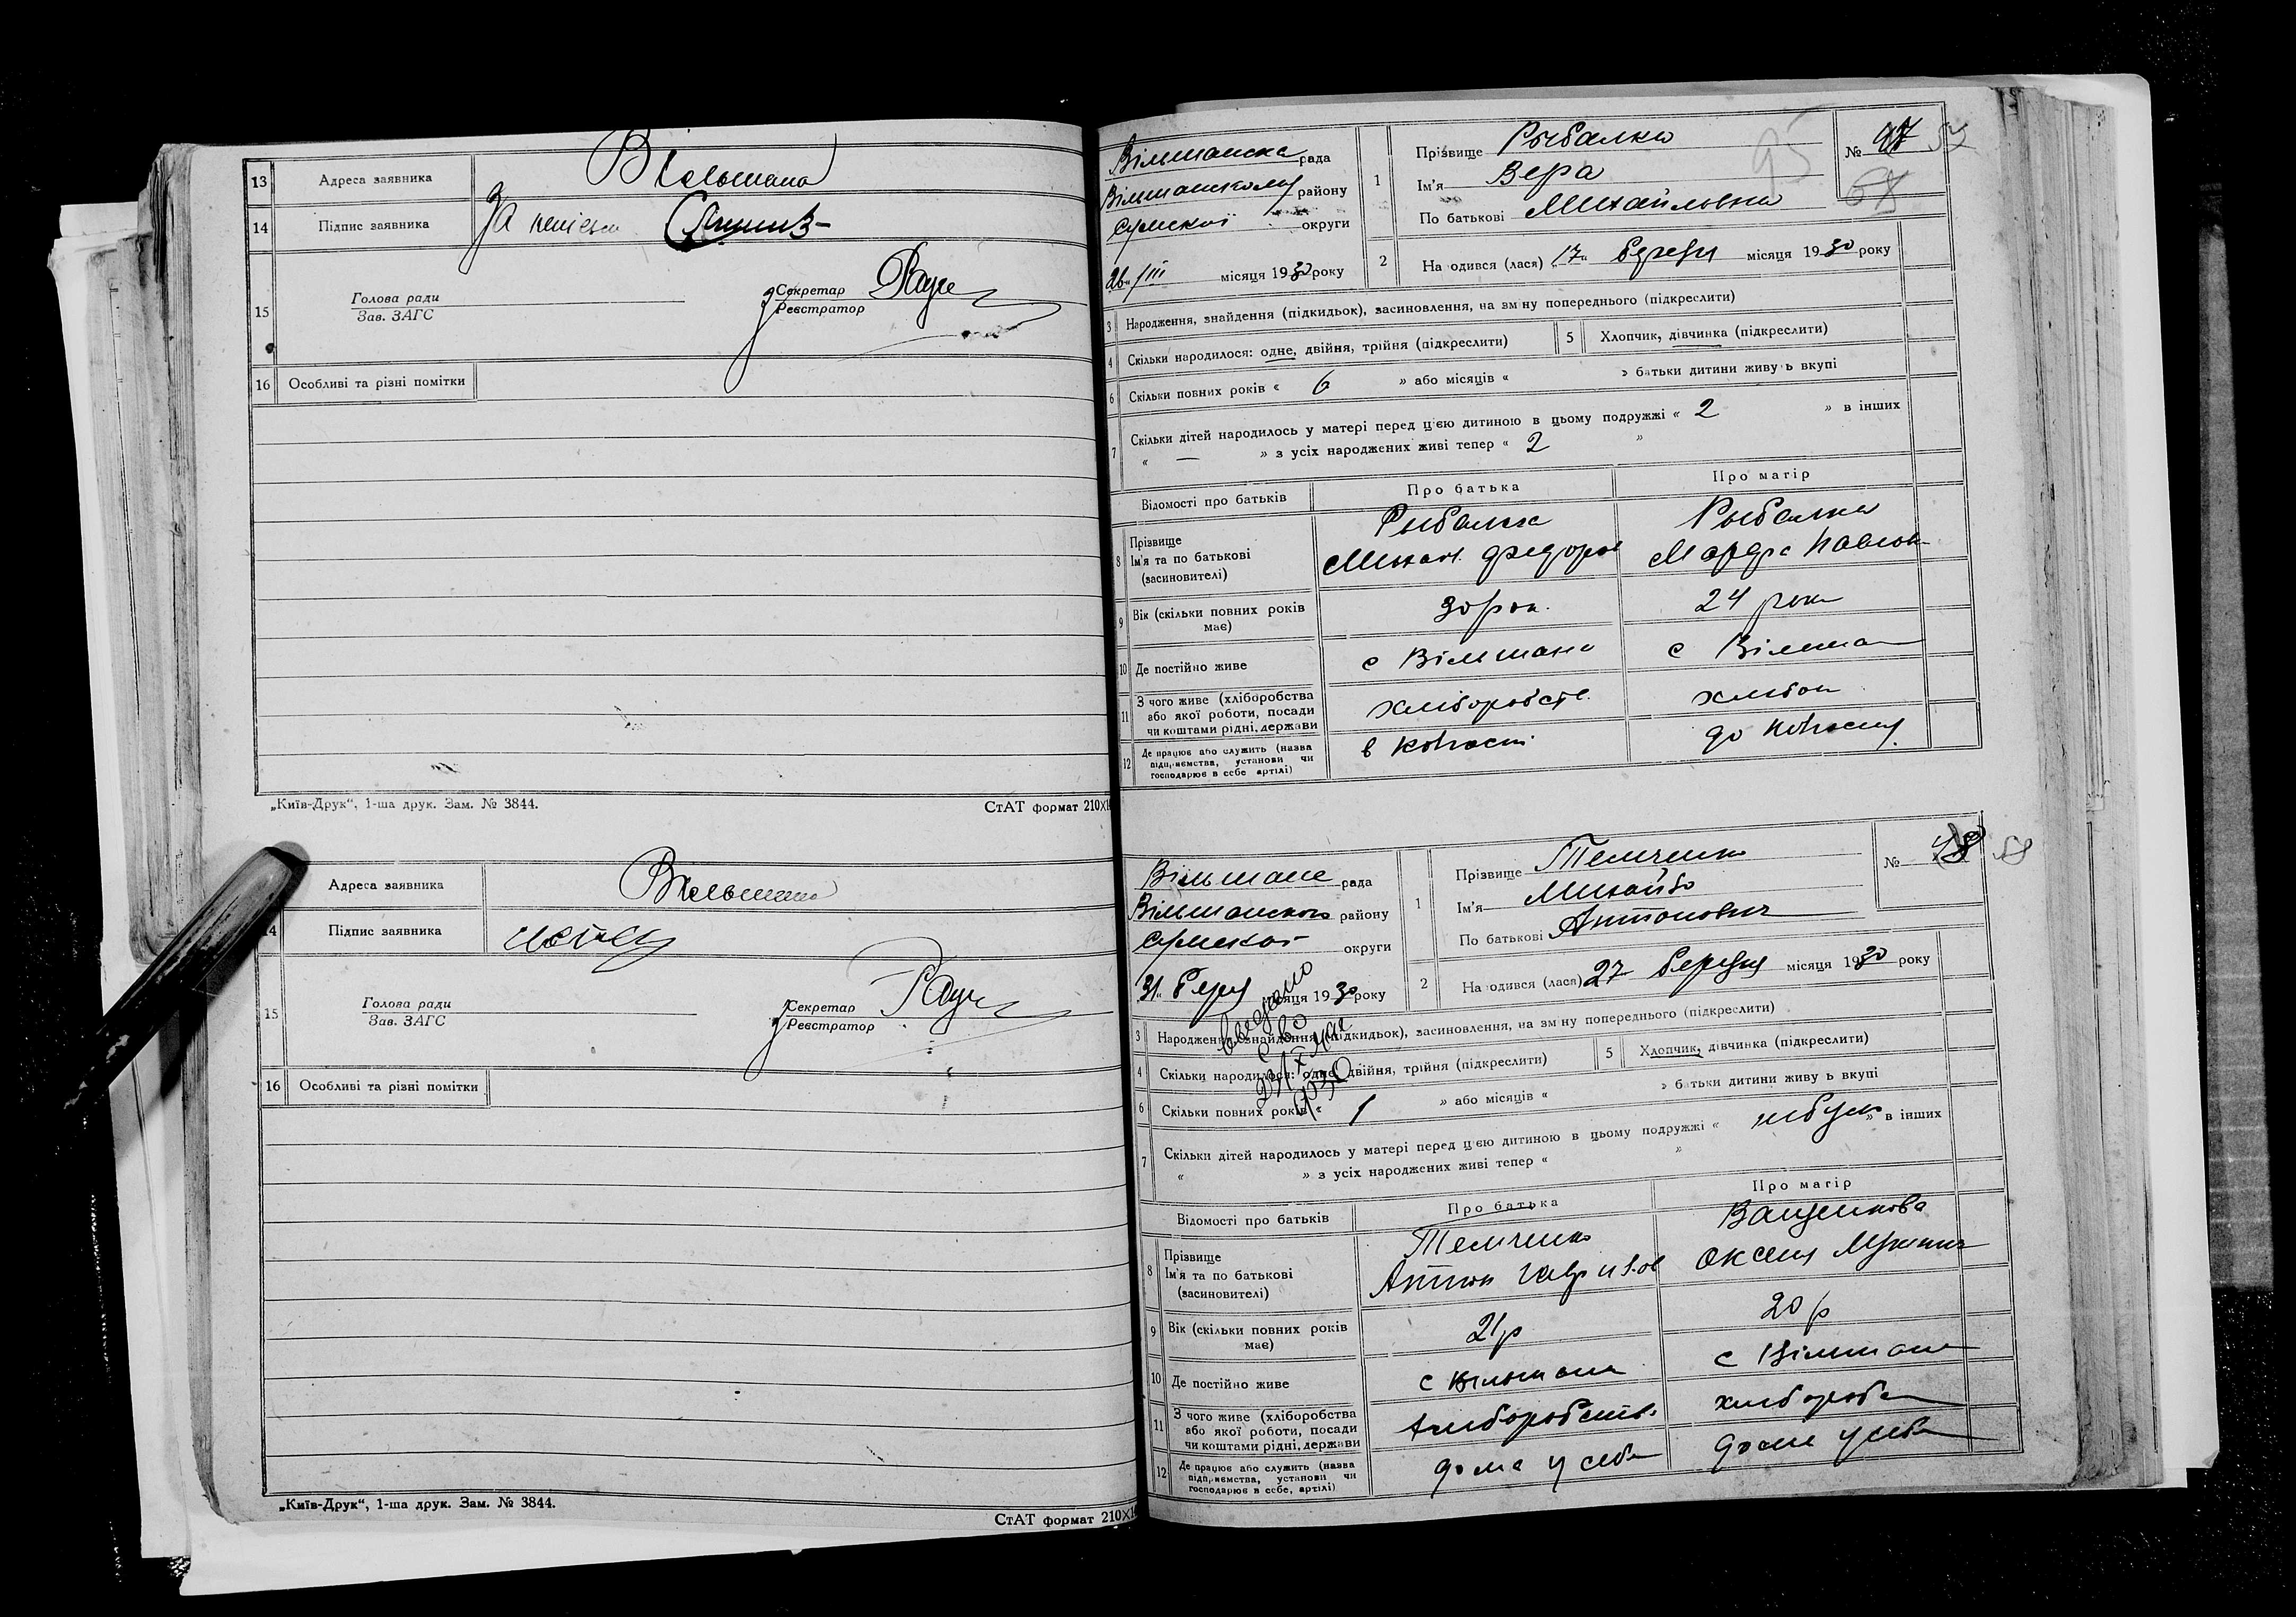 13 Адреса заявника Вільшана
14 Підпис заявника За
15 Голова ради
Зав. ЗАГС
Секретар
Реєстратор
16 Особливі та різні помітки
„Київ-Друк“, 1-ша друк. Зам. № 3844.
СтАТ формат 210×1
Адреса заявника Вільшана
14 Підпис заявника
15 Голова ради
Зав. ЗАГС
Секретар
Реєстратор
16 Особливі та різні помітки
„Київ-Друк“, 1-ша друк. Зам. № 3844.
СтАТ формат 210×1
Вілшанска рада
Вілшанскому району
Сумскої округи
26 /III місяця 1930 року
1 Прізвище Рыбалка
Ім'я Вера
По батькові Михайловна
№ 47
95
2 На одився (лася) „17„ березня місяця 1930 року
3 Народження, знайдення (підкидьок), засиновлення, на зм ну попереднього (підкреслити)
4 Скільки народилося: одне, двійня, трійня (підкреслити)
5 Хлопчик, дівчинка (підкреслити)
6 Скільки повних років « 6 » або місяців « » батьки дитини живу ь вкупі
7 Скільки дітей народилось у матері перед ц'єю дитиною в цьому подружжі « 2 » в інших
« — » з усіх народжених живі тепер « 2 »
Відомості про батьків Про батька Про матір
8 Прізвище
Ім'я та по батькові
(засиновителі)
Рыбалка
Михаил Федоров
Рыбалка
Марфа Павлов
9 Вік (скільки повних років має) 30 рок. 24 роки
10 Де постійно живе с Вілшана с Вілша
11 З чого живе (хліборобства
або якої роботи, посади
чи коштами рідні, держави
хліборобств.
12 Де працює або служить (назва
підпр.ємства, установи чи
господарює в себе артілі)
Вільшане рада
Вільшанского району
Сумской округи
31„ Бере місяця 1930 року
1 Прізвище Темченко
Ім'я Михайло
По батькові Антонович
№ 48
2 На одився (лася) 27 березня місяця 1930 року
3 Народження, знайдення (підкидьок), засиновлення, на зм ну попереднього (підкреслити)
4 Скільки народилося: одне, двійня, трійня (підкреслити)
5 Хлопчик, дівчинка (підкреслити)
6 Скільки повних років « 1 » або місяців « » батьки дитини живу ь вкупі
7 Скільки дітей народилось у матері перед ц'єю дитиною в цьому подружжі « » в інших
« » з усіх народжених живі тепер « »
Відомості про батьків Про батька Про матір
8 Прізвище
Ім'я та по батькові
(засиновителі)
Темченко
Антон Гаврилов
Оксеня
9 Вік (скільки повних років має) 21 р 20 р
10 Де постійно живе с Вільшана с Вілшана
11 З чого живе (хліборобства
або якої роботи, посади
чи коштами рідні, держави
хлиборобств. хлибороба
12 Де працює або служить (назва
підпр.ємства, установи чи
господарює в себе, артілі)
дома у себе